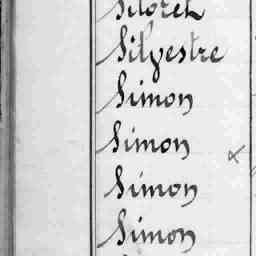 Silvestre
Simon
Simon
Simon
Simon